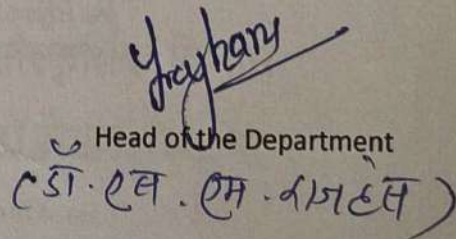 Head of the Department
(डॉ. एस. एम. राजहंस)